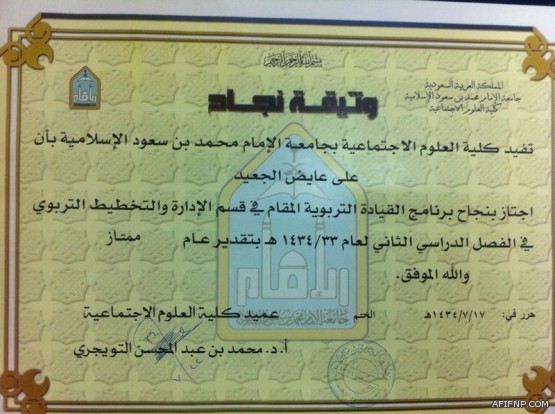 بسم الله الرحمن الرحيم
المملكة العربية السعودية
جامعة الإمام محمد بن سعود الإسلامية
كلية العلوم الاجتماعية
وثيقة نجاح
تفيد كلية العلوم الاجتماعية بجامعة الإمام محمد بن سعود الإسلامية بأن
على عايض الجعيد
اجتاز بنجاح برنامج القيادة التربوية المقام في قسم الإدارة والتخطيط التربوي
في الفصل الدراسي الثاني لعام ١٤٣٤/٣٣ هـ بتقدير عام ممتاز
والله الموفق.
حرر في: ١٤٣٤/٧/١٧هـ الختم عميد كلية العلوم الاجتماعية
أ.د. محمد بن عبد المحسن التويجري
AFIFNP.COM